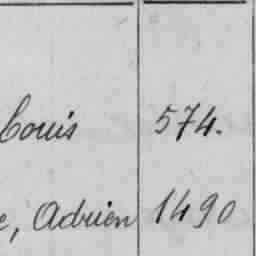 Louis 574.
e, Adrien 1490